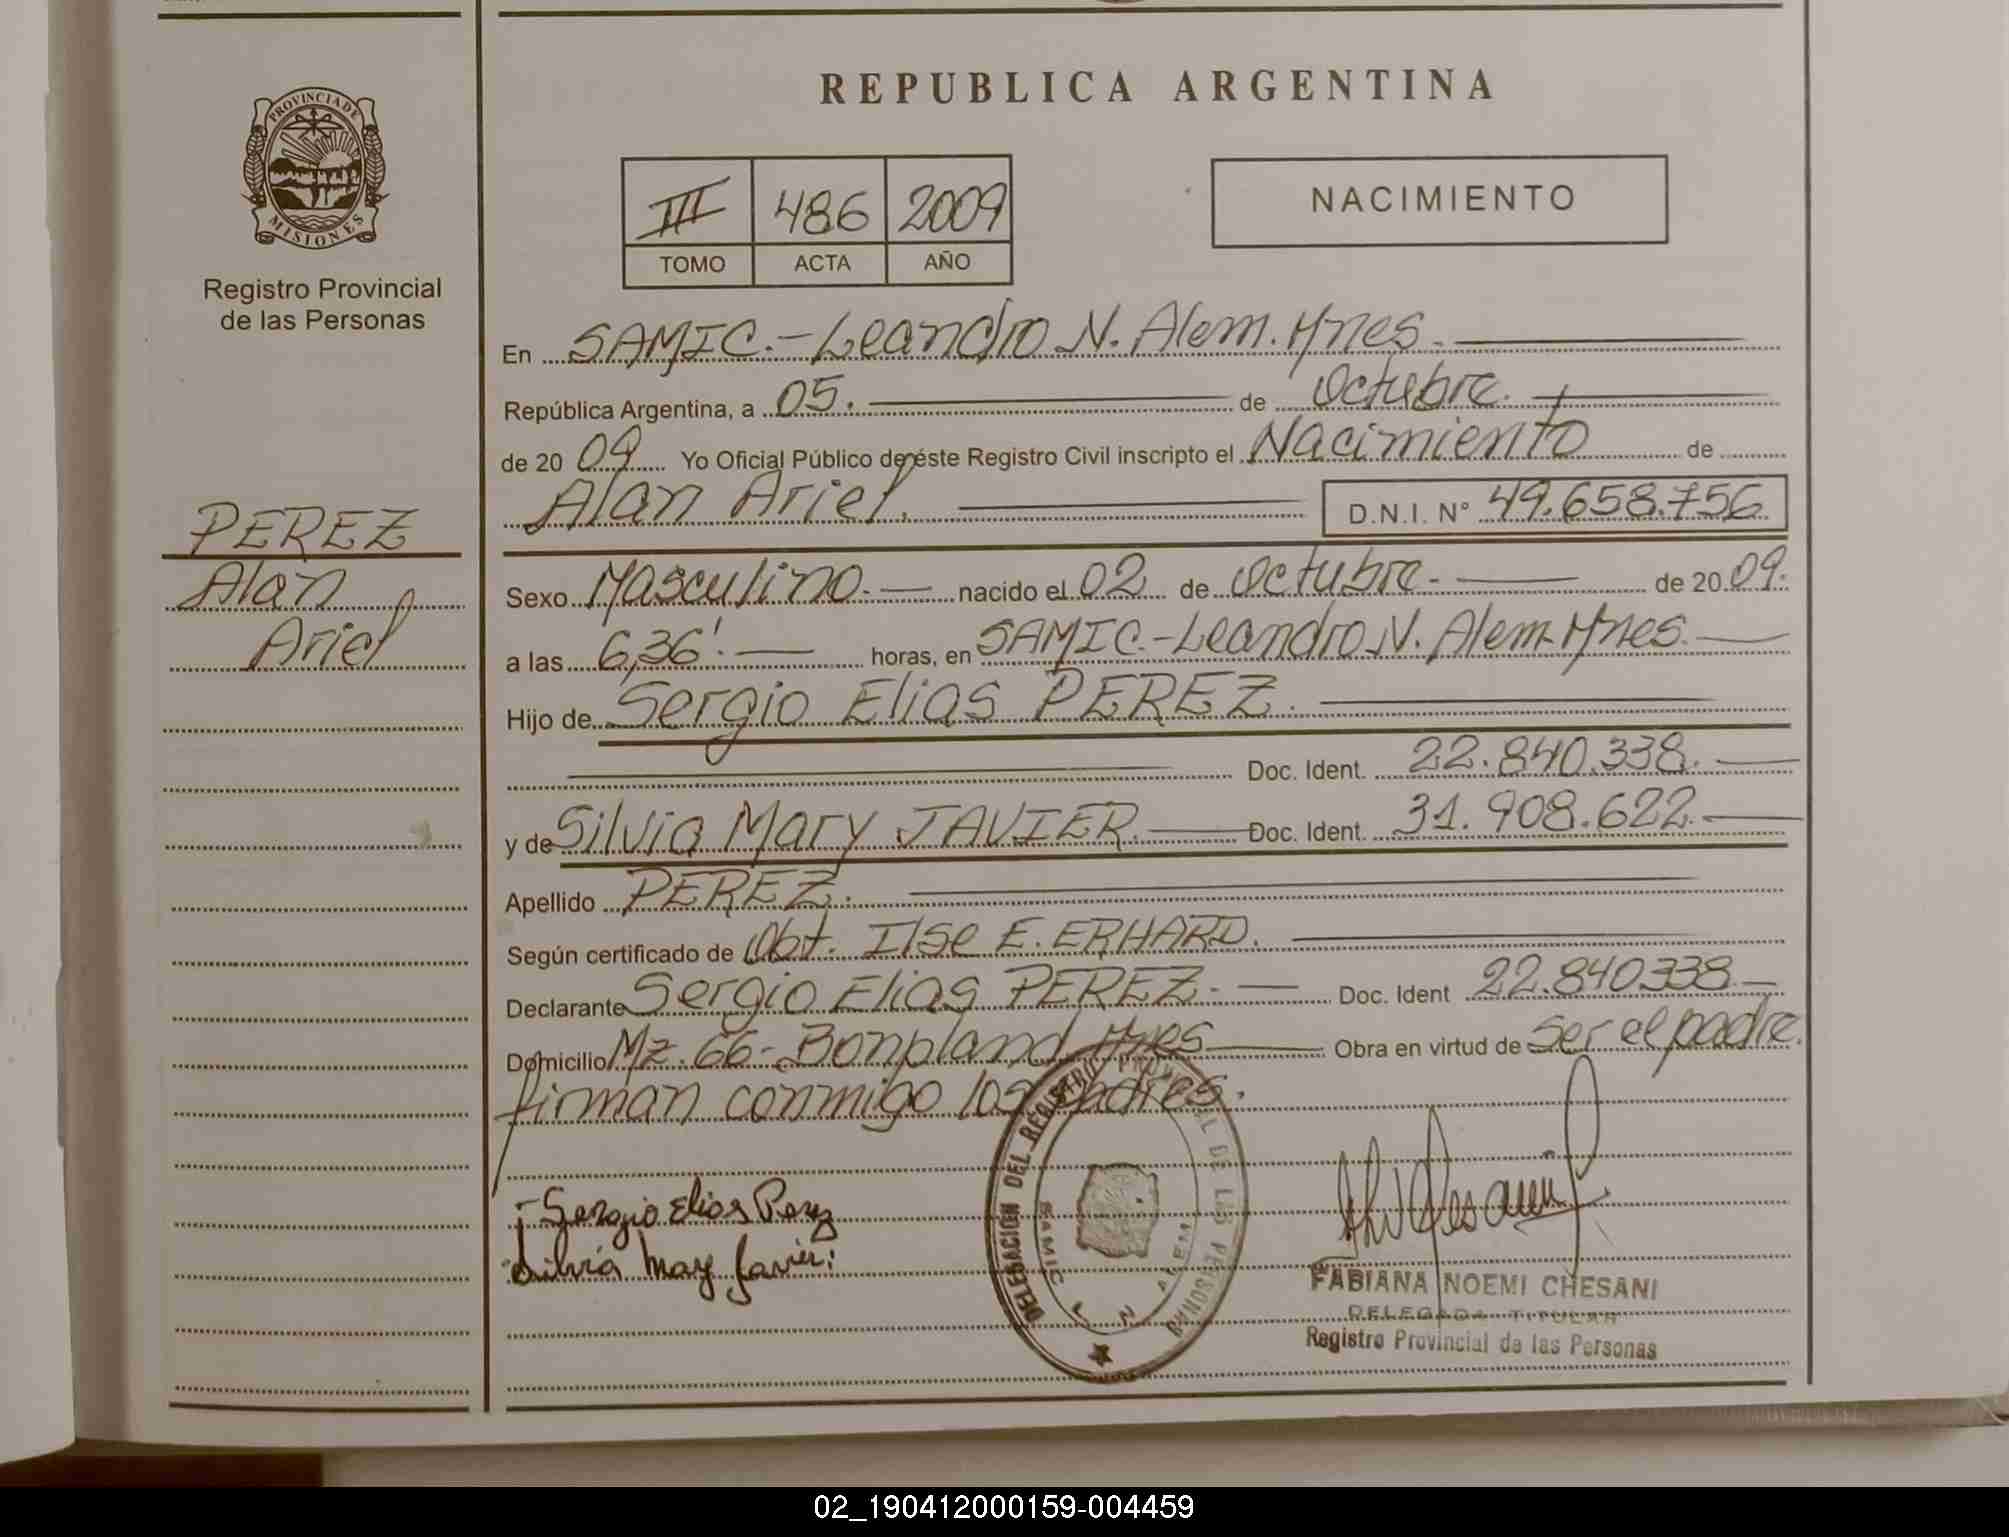 PROVINCIA DE
MISIONES
Registro Provincial
de las Personas
PEREZ
Alan
Ariel
REPUBLICA ARGENTINA
III 486 2009
TOMO ACTA AÑO
NACIMIENTO
En SAMIC.-Leandro N. Alem. Mnes.
República Argentina, a 05. de Octubre.
de 20 09 Yo Oficial Público de éste Registro Civil inscripto el Nacimiento de
Alan Ariel. D.N.I. N° 49.658.756
Sexo Masculino.- nacido el 02 de Octubre.- de 20 09.
a las 6,36'.- horas, en SAMIC.-Leandro N. Alem-Mnes.
Hijo de Sergio Elias PEREZ.
Doc. Ident. 22.840.338.
y de Silvia Mary JAVIER. Doc. Ident. 31.908.622.
Apellido PEREZ.
Según certificado de Obt. Ilse E. ERHARD.
Declarante Sergio Elias PEREZ.- Doc. Ident 22.840.338
Domicilio Mz. 66.- Bonpland Mnes Obra en virtud de ser el padre.
firman conmigo los padres.
Sergio Elias Perez
Silvia Mary Javier.
DELEGACION DEL REGISTRO PROVINCIAL DE LAS PERSONAS
SAMIC L N ALEM
FABIANA NOEMI CHESANI
DELEGADA TITULAR
Registro Provincial de las Personas
02_190412000159-004459